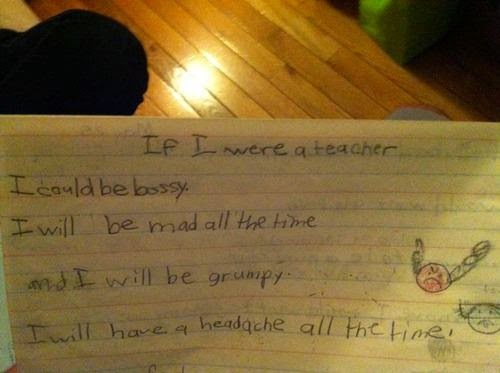 If I were a teacher
I could be bossy.
I will be mad all the time
and I will be grumpy.
I will have a headache all the time.